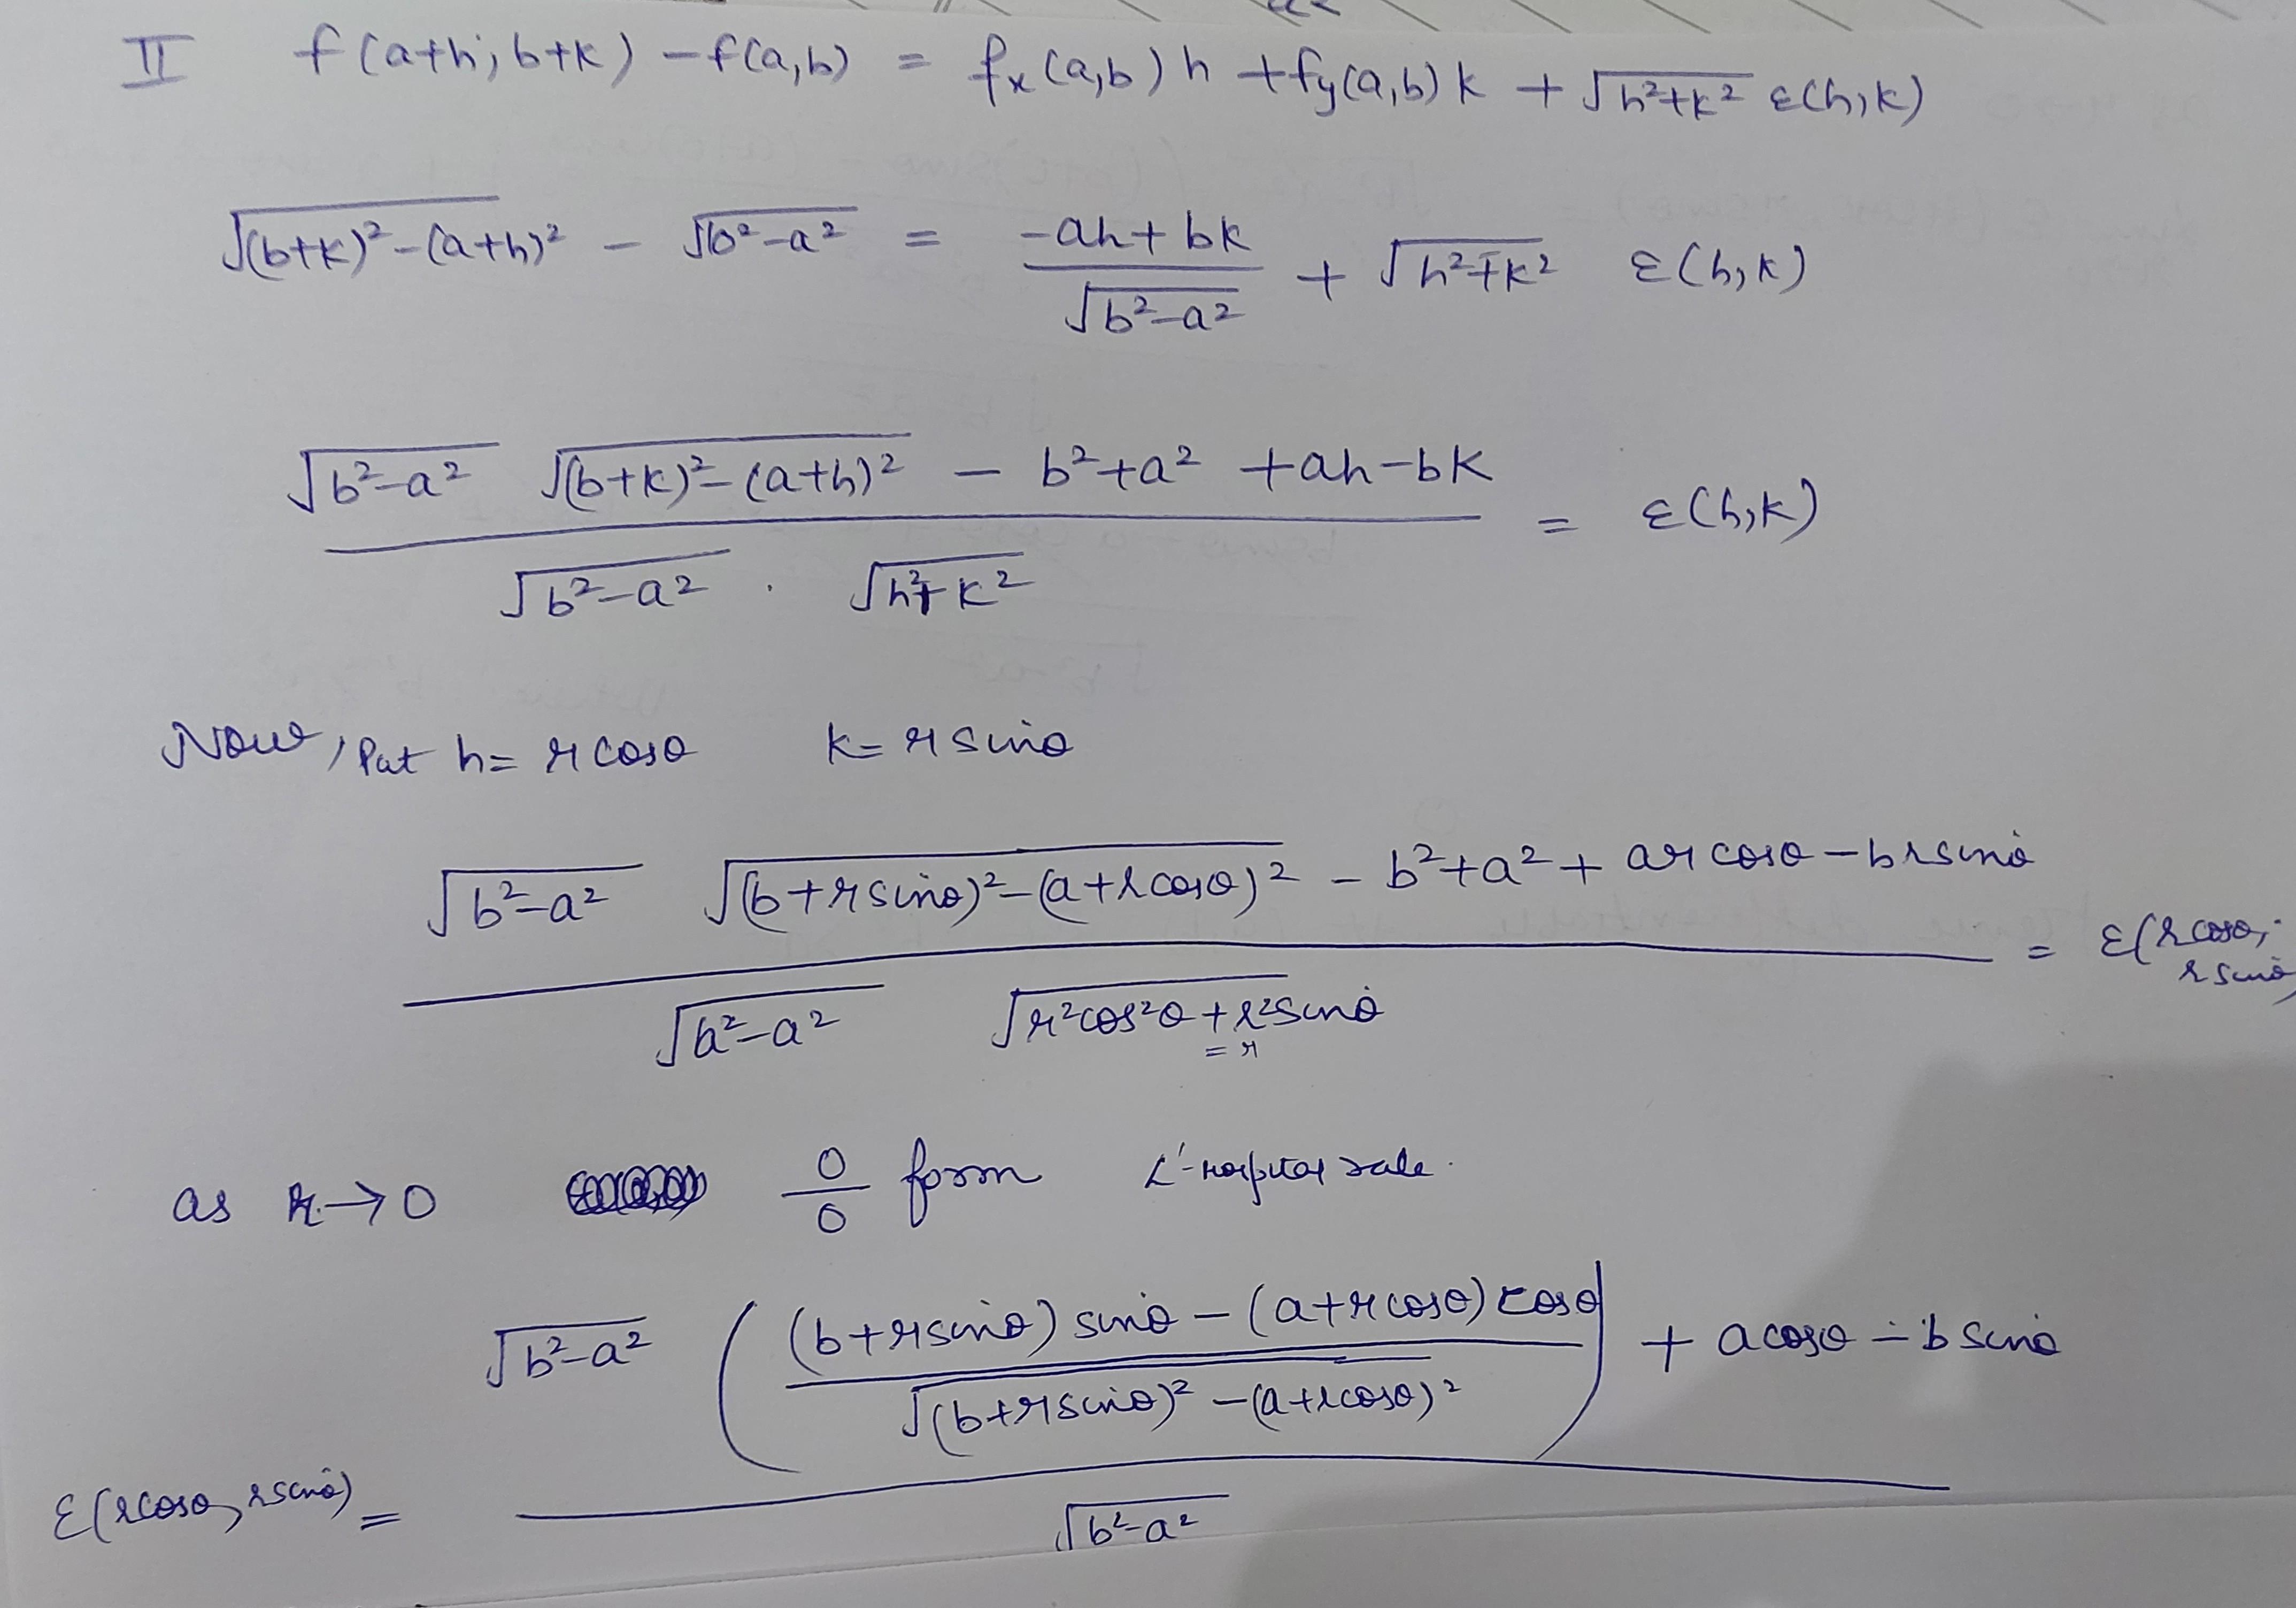 II f(a+h, b+k) - f(a,b) = fx(a,b) h + fy(a,b) k + √(h²+k²) ε(h,k)
√((b+k)²-(a+h)²) - √(b²-a²) = (-ah+bk)/√(b²-a²) + √(h²+k²) ε(h,k)
(√(b²-a²) √((b+k)²-(a+h)²) - b²+a² +ah-bk)/(√(b²-a²) . √(h²+k²)) = ε(h,k)
Now, Put h= r cosθ k= r sinθ
(√(b²-a²) √((b+r sinθ)²-(a+r cosθ)²) - b²+a²+ ar cosθ - br sinθ)/(√(b²-a²) √(r²cos²θ + r²sinθ) = r) = ε(r cosθ, r sinθ)
as r→0 0/0 form L'-Hospital rule.
ε(r cosθ, r sinθ) = (√(b²-a²) (((b+r sinθ) sinθ - (a+r cosθ) cosθ)/√((b+r sinθ)² - (a+r cosθ)²)) + a cosθ - b sinθ)/√(b²-a²)